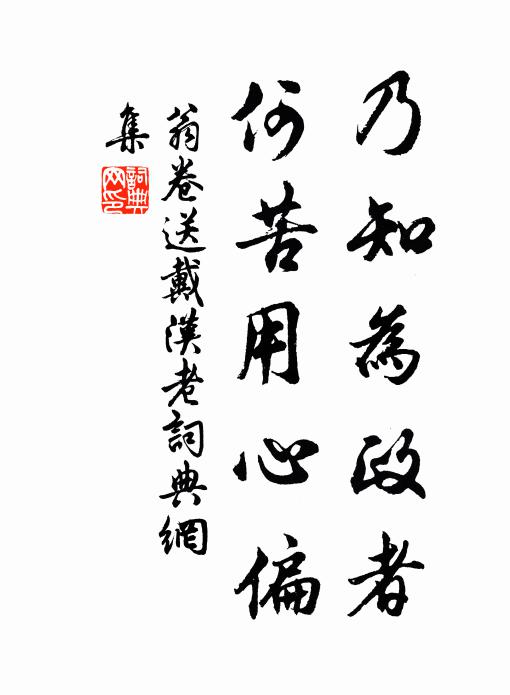 乃知為政者
何苦用心偏
翁卷送戴漢老詞典網
集
詞典網印